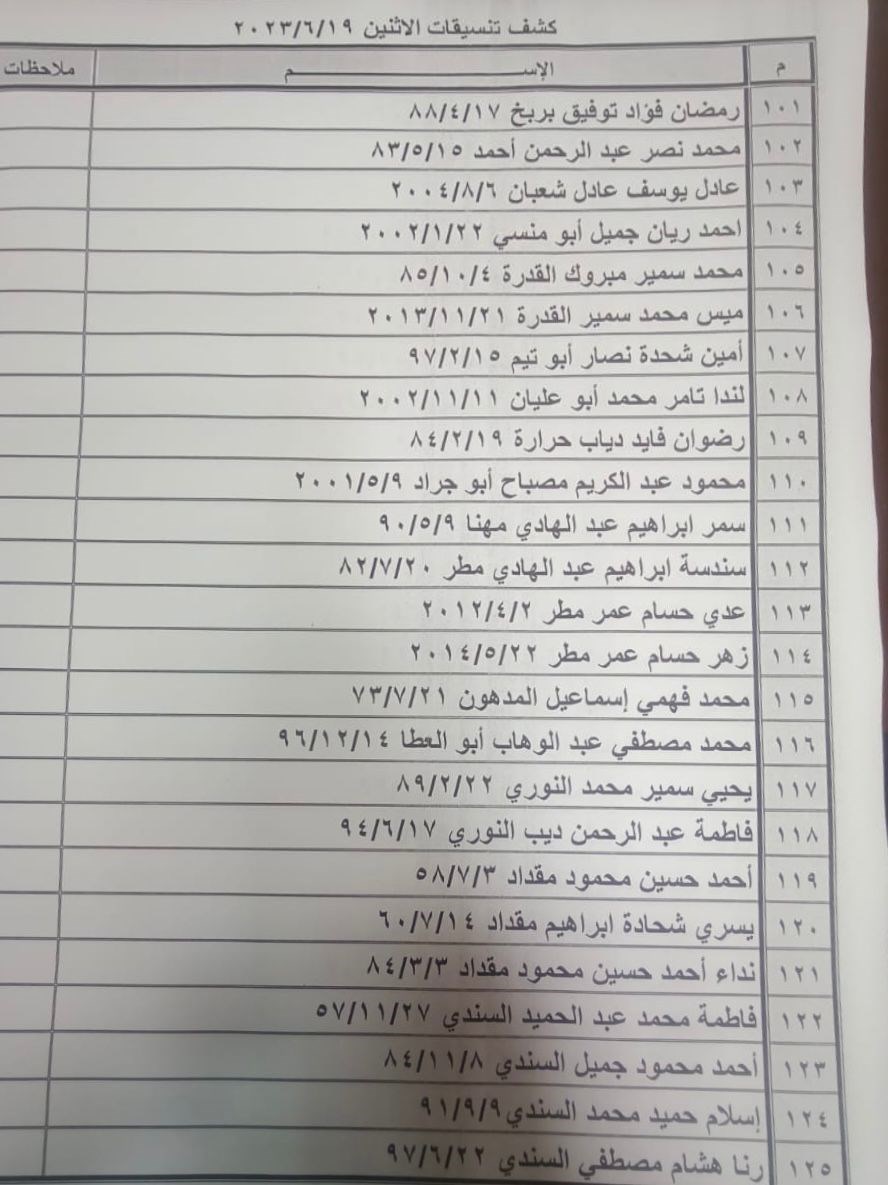 كشف تنسيقات الاثنين ٢٠٢٣/٦/١٩
م الإســـــــم ملاحظات
١٠١ رمضان فؤاد توفيق بربخ ٨٨/٤/١٧
١٠٢ محمد نصر عبد الرحمن أحمد ٨٣/٥/١٥
١٠٣ عادل يوسف عادل شعبان ٢٠٠٤/٨/٦
١٠٤ احمد ريان جميل أبو منسي ٢٠٠٢/١/٢٢
١٠٥ محمد سمير مبروك القدرة ٨٥/١٠/٤
١٠٦ ميس محمد سمير القدرة ٢٠١٣/١١/٢١
١٠٧ أمين شحدة نصار أبو تيم ٩٧/٢/١٥
١٠٨ لندا تامر محمد أبو عليان ٢٠٠٢/١١/١١
١٠٩ رضوان فايد دياب حرارة ٨٤/٢/١٩
١١٠ محمود عبد الكريم مصباح أبو جراد ٢٠٠١/٥/٩
١١١ سمر ابراهيم عبد الهادي مهنا ٩٠/٥/٩
١١٢ سندسة ابراهيم عبد الهادي مطر ٨٢/٧/٢٠
١١٣ عدي حسام عمر مطر ٢٠١٢/٤/٢
١١٤ زهر حسام عمر مطر ٢٠١٤/٥/٢٢
١١٥ محمد فهمي إسماعيل المدهون ٧٣/٧/٢١
١١٦ محمد مصطفي عبد الوهاب أبو العطا ٩٦/١٢/١٤
١١٧ يحيي سمير محمد النوري ٨٩/٢/٢٢
١١٨ فاطمة عبد الرحمن ديب النوري ٩٤/٦/١٧
١١٩ أحمد حسين محمود مقداد ٥٨/٧/٣
١٢٠ يسري شحادة ابراهيم مقداد ٦٠/٧/١٤
١٢١ نداء أحمد حسين محمود مقداد ٨٤/٣/٣
١٢٢ فاطمة محمد عبد الحميد السندي ٥٧/١١/٢٧
١٢٣ أحمد محمود جميل السندي ٨٤/١١/٨
١٢٤ إسلام حميد محمد السندي ٩١/٩/٩
١٢٥ رنا هشام مصطفي السندي ٩٧/٦/٢٢